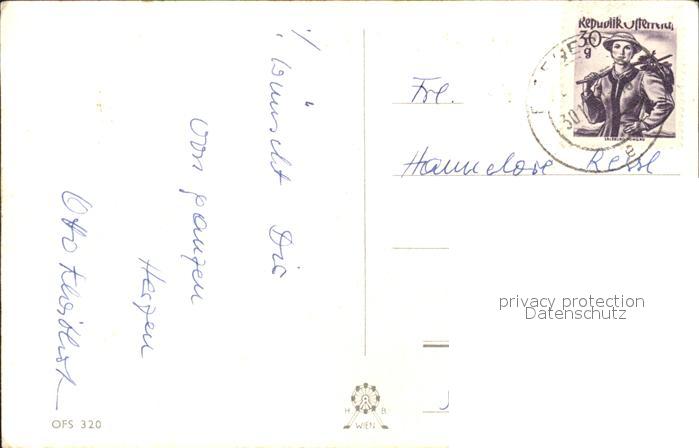 ! Wünscht Dir
von ganzen
Herzen
Otto
Republik Österreich
30
g
SALZBURG, PONGAU
Frl.
Hannelore Ressl
privacy protection
Datenschutz
H B
WIEN
OFS 320